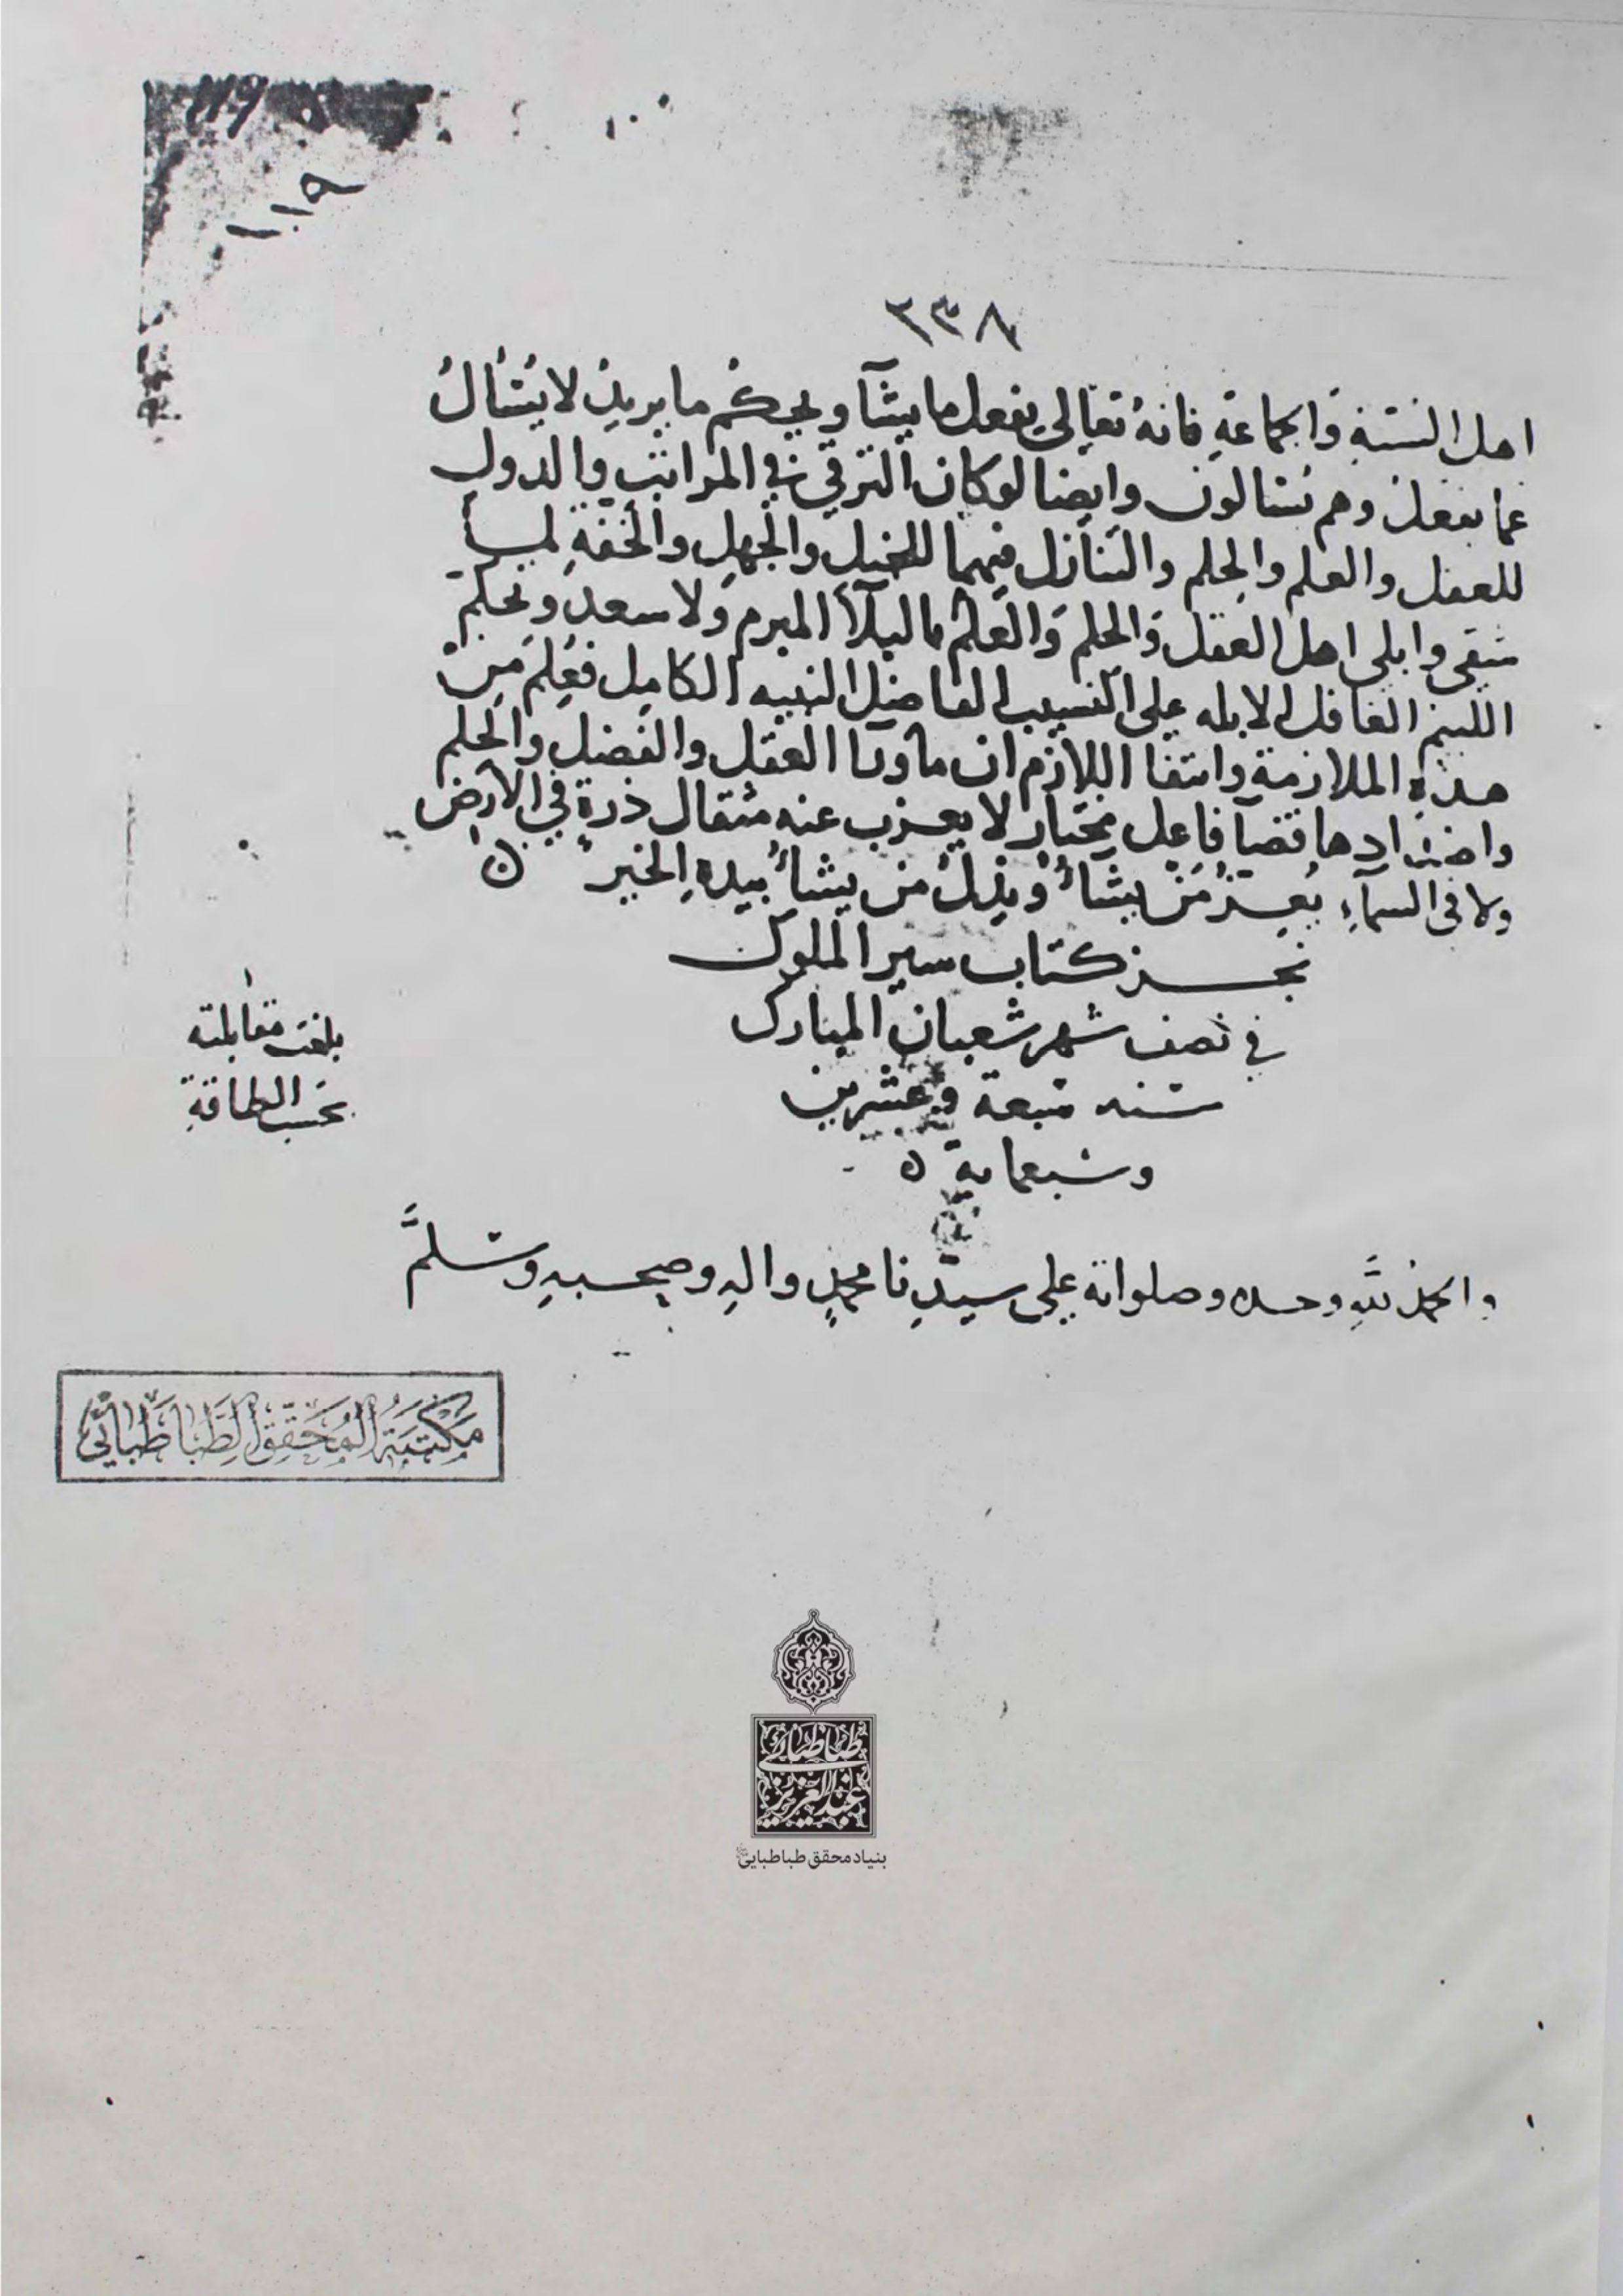 ١١٩
٢٣٨
اهل السنة والجماعة فانه تعالى يفعل ما يشآ ويحكم ما يريد لا يسأل
عما يفعل وهم يسالون وايضا لو كان الترقي في المراتب والدول
للعقل والعلم والحلم والتنازل فيهما للخبل والجهل والخفة لما
شقى وابلى اهل العقل والحلم والعلم بالبلآ المبرم ولا سعد وتحكم
اللئيم الغافل الابله على النسيب الفاضل النبيه الكامل فعلم من
هذه الملازمة وانتفا اللازم ان مآورا العقل والفضل والحلم
واضدادها قضآ فاعل مختار لا يعزب عنه مثقال ذرة في الارض
ولا في السمآء يعز من يشآء ويذل من يشآء بيده الخير ن
نجز كتاب سير الملوك
في نصف شهر شعبان المبارك
سنه سبعة وعشرين
وسبعماية ن
بلغت مقابلته
بحسب الطاقة
والحمد لله وحده وصلواته على سيدنا محمد واله وصحبه وسلم
مَكْتَبَةُ الْمُحَقِّقِ الطَّبَاطَبَائِي
طباطبائی
عبدالعزیز
بنیاد محقق طباطبایی